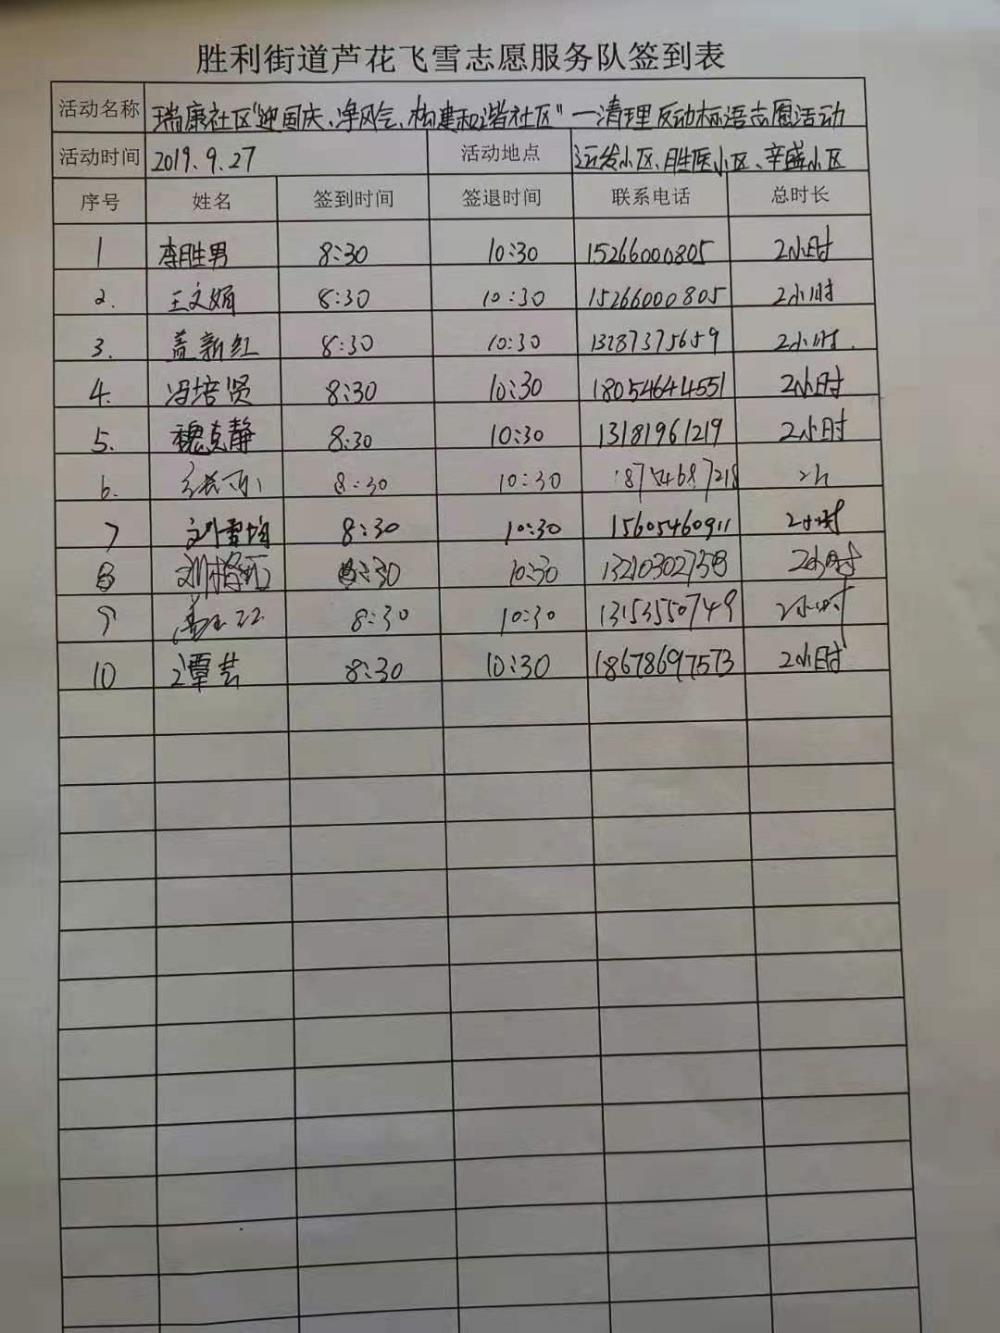 胜利街道芦花飞雪志愿服务队签到表
活动名称 瑞康社区"迎国庆、净风气、构建和谐社区"—清理反动标语志愿活动
活动时间 2019.9.27 活动地点 远发小区、胜医小区、辛盛小区
序号 姓名 签到时间 签退时间 联系电话 总时长
1 李胜男 8:30 10:30 15266000805 2小时
2. 王文娟 8:30 10:30 15266000805 2小时
3. 盖新红 8:30 10:30 13287375659 2小时.
4. 冯培贤 8:30 10:30 18054644551 2小时
5. 魏克静 8:30 10:30 13181961219 2小时
6. 8:30 10:30 18754687218 2h
7 8:30 10:30 15605460911 2小时
8 8:30 10:30 13210302738 2小时
9 8:30 10:30 13153550749 2小时
10 谭芸 8:30 10:30 18678697573 2小时